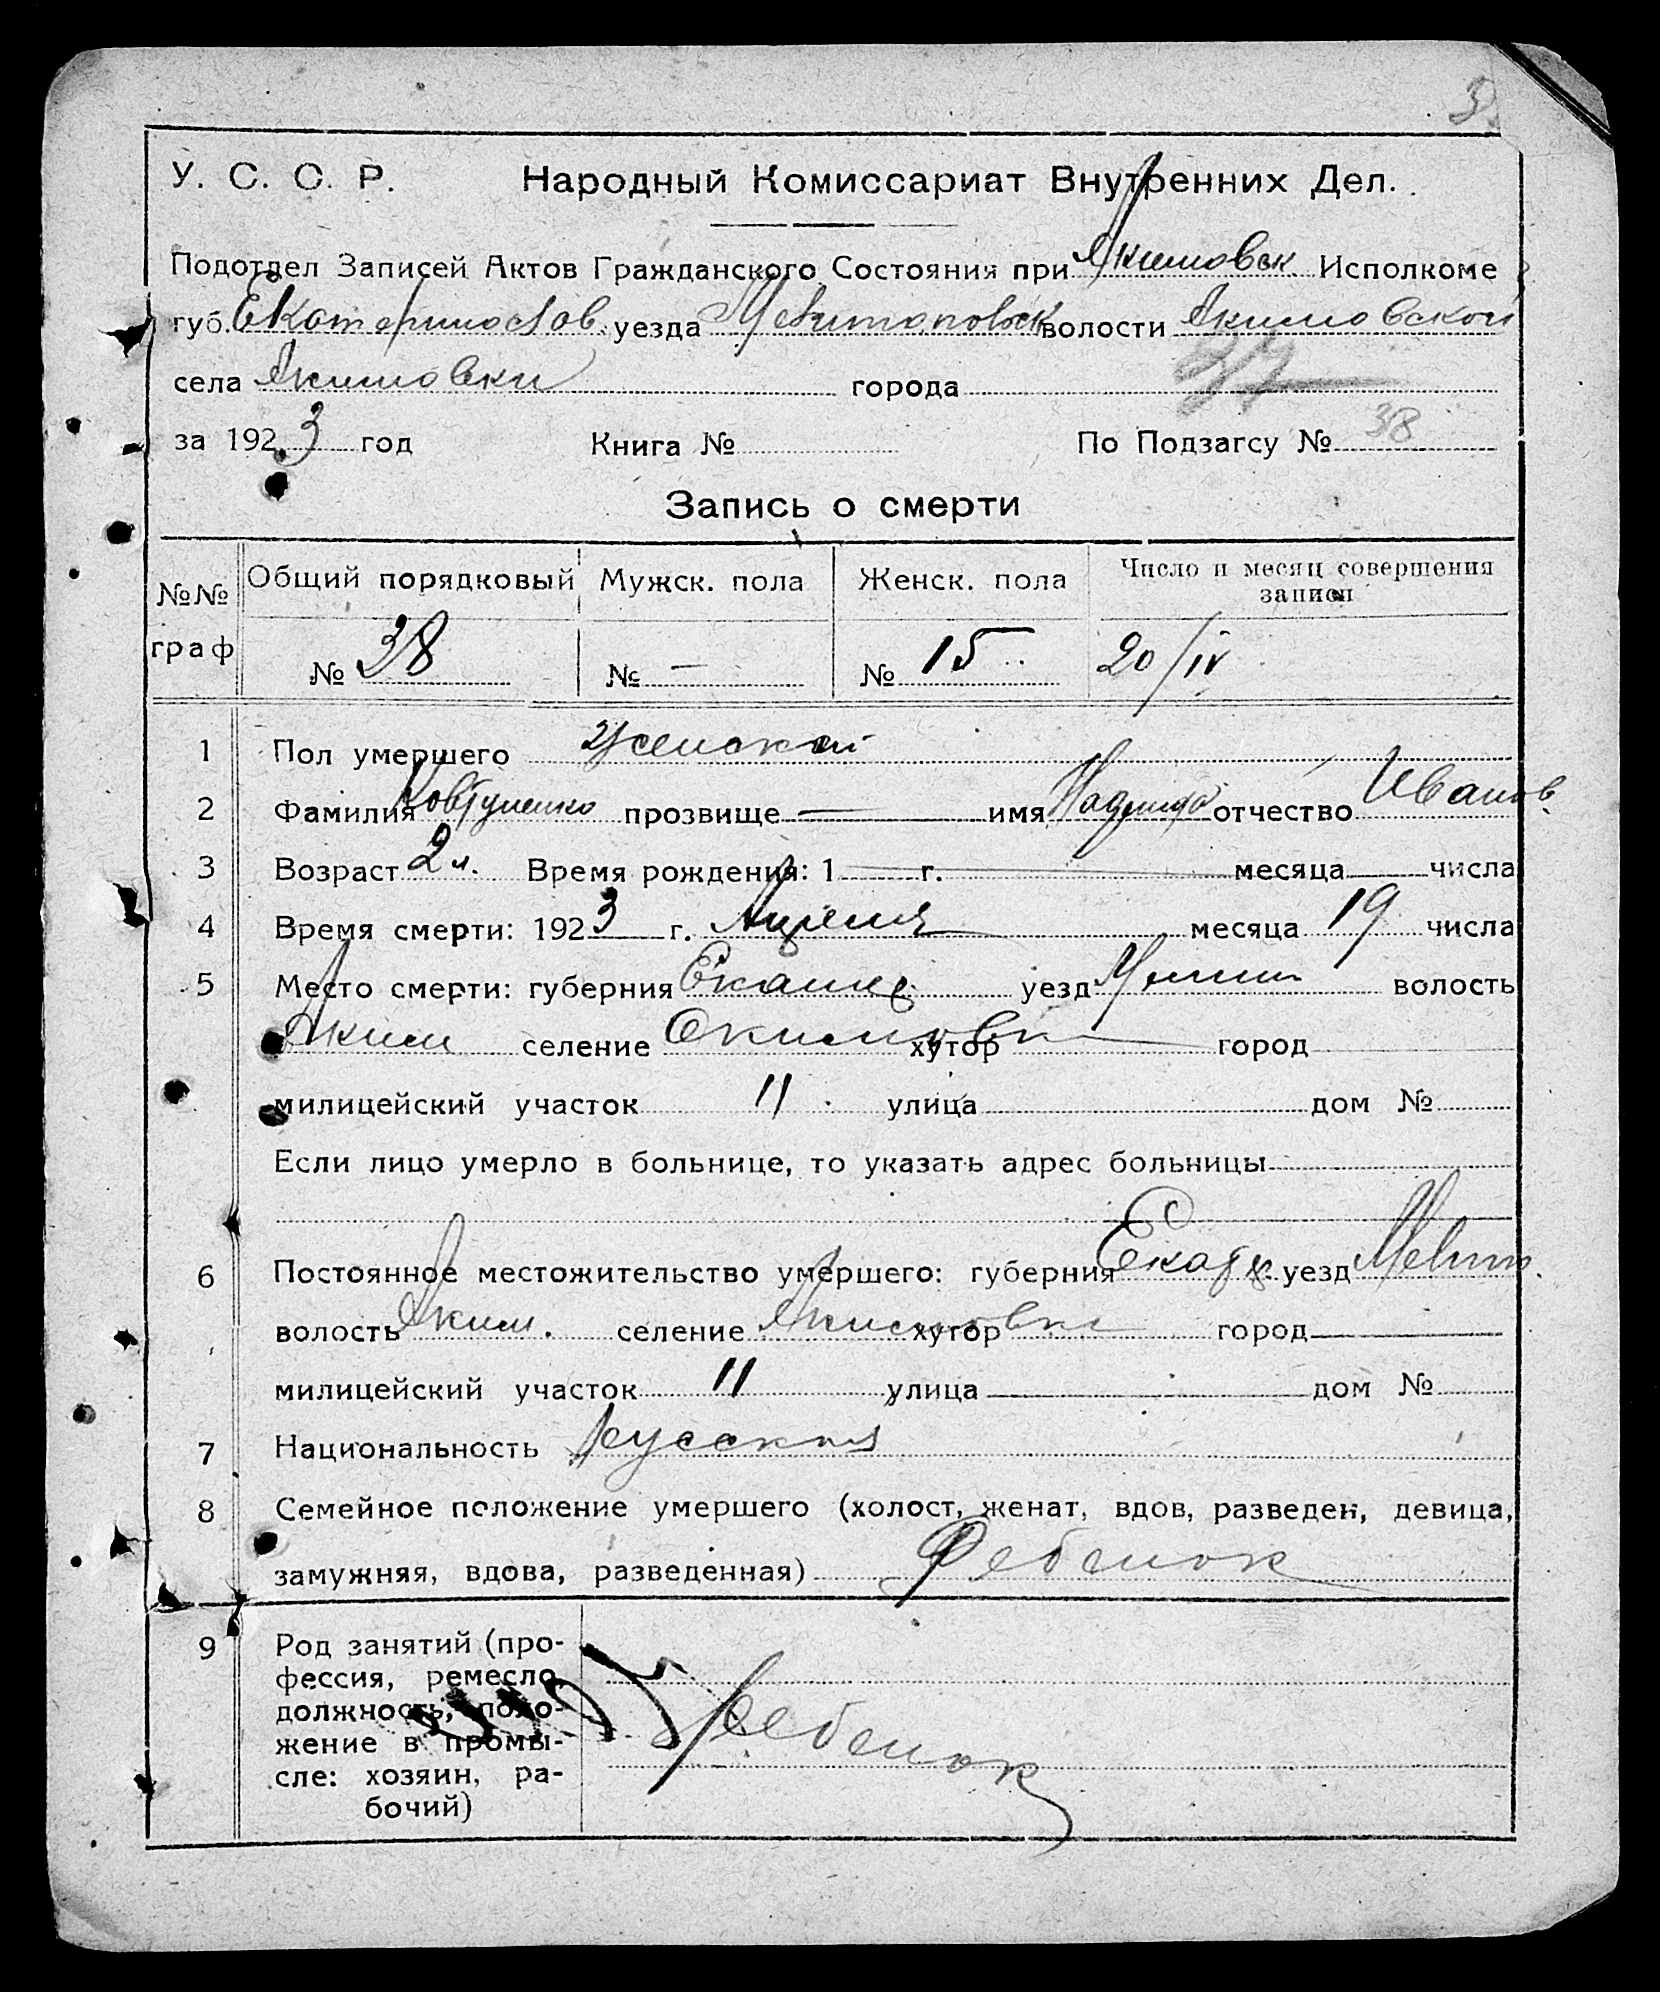 У. С. С. Р. Народный Комиссариат Внутренних Дел.
Подотдел Записей Актов Гражданского Состояния при Акимовск Исполкоме
губ. Екатеринослав. уезда Мелитопольск волости Акимовской
села Акимовки города
за 1923 год Книга № По Подзагсу № 38
Запись о смерти
№№ граф Общий порядковый Мужск. пола Женск. пола Число и месяц совершения записи
№ 38 № — № 15 20/IV
1 Пол умершего женской
2 Фамилия Ковтуненко прозвище — имя Надежда отчество Иванов.
3 Возраст 2 г. Время рождения: 1 г. месяца числа
4 Время смерти: 1923 г. Апреля месяца 19 числа
5 Место смерти: губерния Екатер. уезд Мелит волость
Аким селение Акимовка хутор город
милицейский участок 11 улица дом №
Если лицо умерло в больнице, то указать адрес больницы
6 Постоянное местожительство умершего: губерния Екатер. уезд Мелит.
волость Аким. селение Акимовка хутор город
милицейский участок 11 улица дом №
7 Национальность Русская
8 Семейное положение умершего (холост, женат, вдов, разведен, девица,
замужняя, вдова, разведенная) Ребенок
9 Род занятий (про-
фессия, ремесло,
должность, поло-
жение в промы-
сле: хозяин, ра-
бочий)
Ребенок